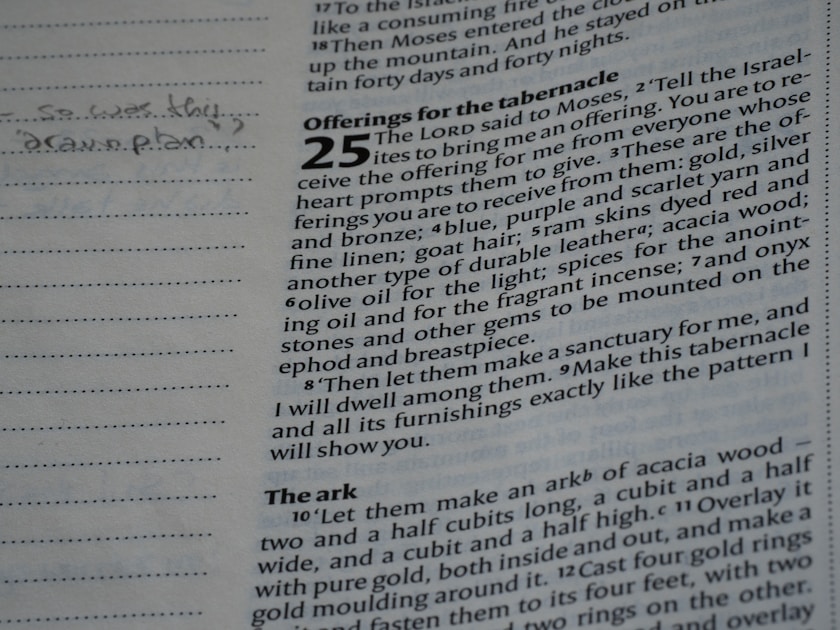 - so was this
'drawn plan'?
17To the Israe
like a consuming fire o
18Then Moses entered the clou
up the mountain. And he stayed on t
tain forty days and forty nights.
Offerings for the tabernacle
25 The LORD said to Moses, 2'Tell the Israel-
ites to bring me an offering. You are to re-
ceive the offering for me from everyone whose
heart prompts them to give. 3These are the of-
ferings you are to receive from them: gold, silver
and bronze; 4blue, purple and scarlet yarn and
fine linen; goat hair; 5ram skins dyed red and
another type of durable leathera; acacia wood;
6olive oil for the light; spices for the anoint-
ing oil and for the fragrant incense; 7and onyx
stones and other gems to be mounted on the
ephod and breastpiece.
8'Then let them make a sanctuary for me, and
I will dwell among them. 9Make this tabernacle
and all its furnishings exactly like the pattern I
will show you.
The ark
10'Let them make an arkb of acacia wood –
two and a half cubits long, a cubit and a half
wide, and a cubit and a half high.c 11Overlay it
with pure gold, both inside and out, and make a
gold moulding around it. 12Cast four gold rings
fasten them to its four feet, with two
two rings on the other.
and overlay